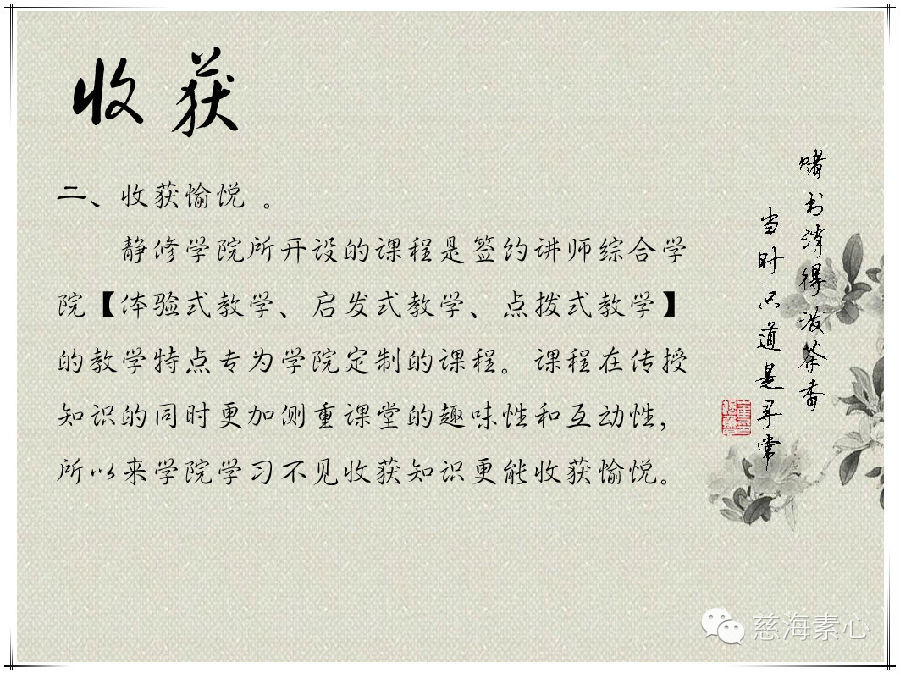 收获
二、收获愉悦 。
静修学院所开设的课程是签约讲师综合学
院【体验式教学、启发式教学、点拨式教学】
的教学特点专为学院定制的课程。课程在传授
知识的同时更加侧重课堂的趣味性和互动性,
所以来学院学习不见收获知识更能收获愉悦。
赌书消得泼茶香
当时只道是寻常
慈海素心